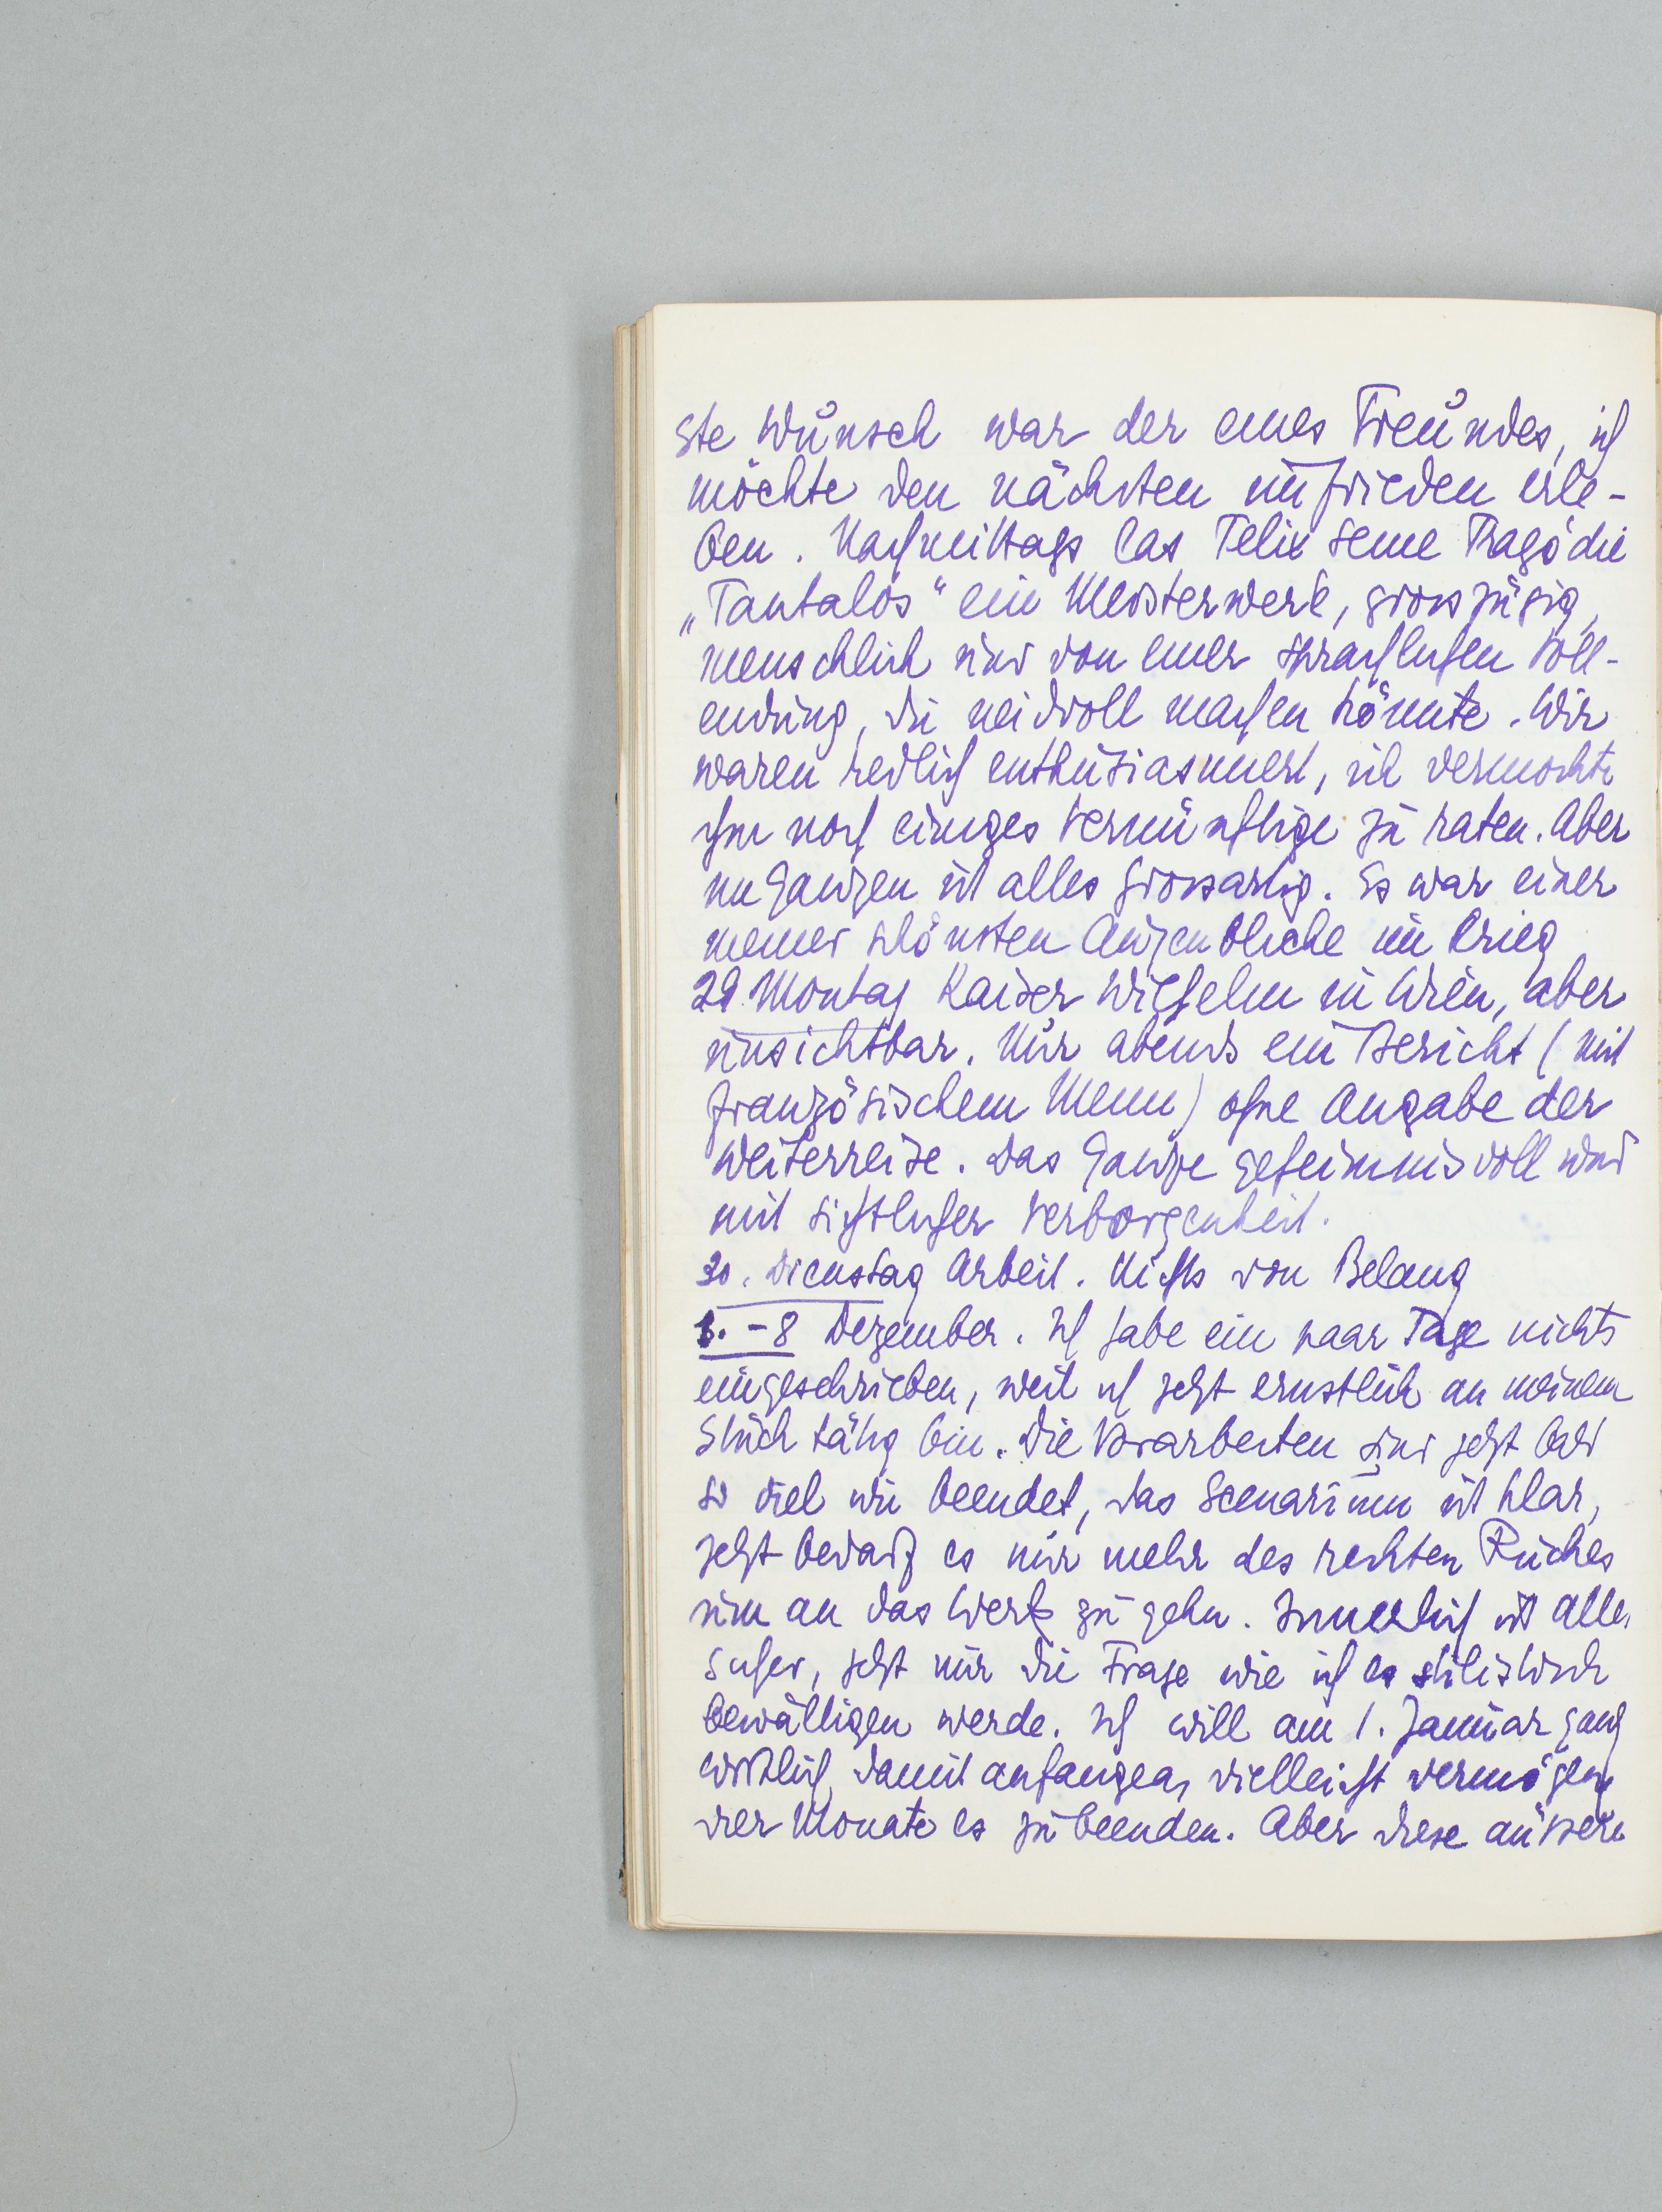 ste Wunsch war der eines Freundes, ich
möchte den nächsten im Frieden erle-
ben. Nachmittags las Felix seine Tragödie
„Tantalos“ ein Meisterwerk, grosszügig,
menschlich und von einer sprachlichen Voll-
endung, die neidvoll machen könnte. Wir
waren redlich enthusiasmiert, ich vermochte
ihm noch einiges Vernünftige zu raten. Aber
im Ganzen ist alles grossartig. Es war einer
meiner schönsten Augenblicke im Krieg
29. Montag Kaiser Wilhelm in Wien, aber
unsichtbar. Nur abends ein Bericht (mit
französischem Menu) ohne Angabe der
Weiterreise. Das Ganze geheimnisvoll und
mit sichtlicher Verborgenheit.
30. Dienstag Arbeit. Nichts von Belang
1. – 8 Dezember. Ich habe ein paar Tage nichts
eingeschrieben, weil ich jetzt ernstlich an meinem
Stück tätig bin. Die Vorarbeiten sind jetzt bald
so viel wie beendet, das Scenarium ist klar,
jetzt bedarf es nur mehr des rechten Ruckes
um an das Werk zu gehn. Innerlich ist alles
sicher, jetzt nur die Frage wie ich es stilistisch
bewältigen werde. Ich will am 1. Januar ganz
wirklich damit anfangen, vielleicht vermögen
vier Monate es zu beenden. Aber diese äussern